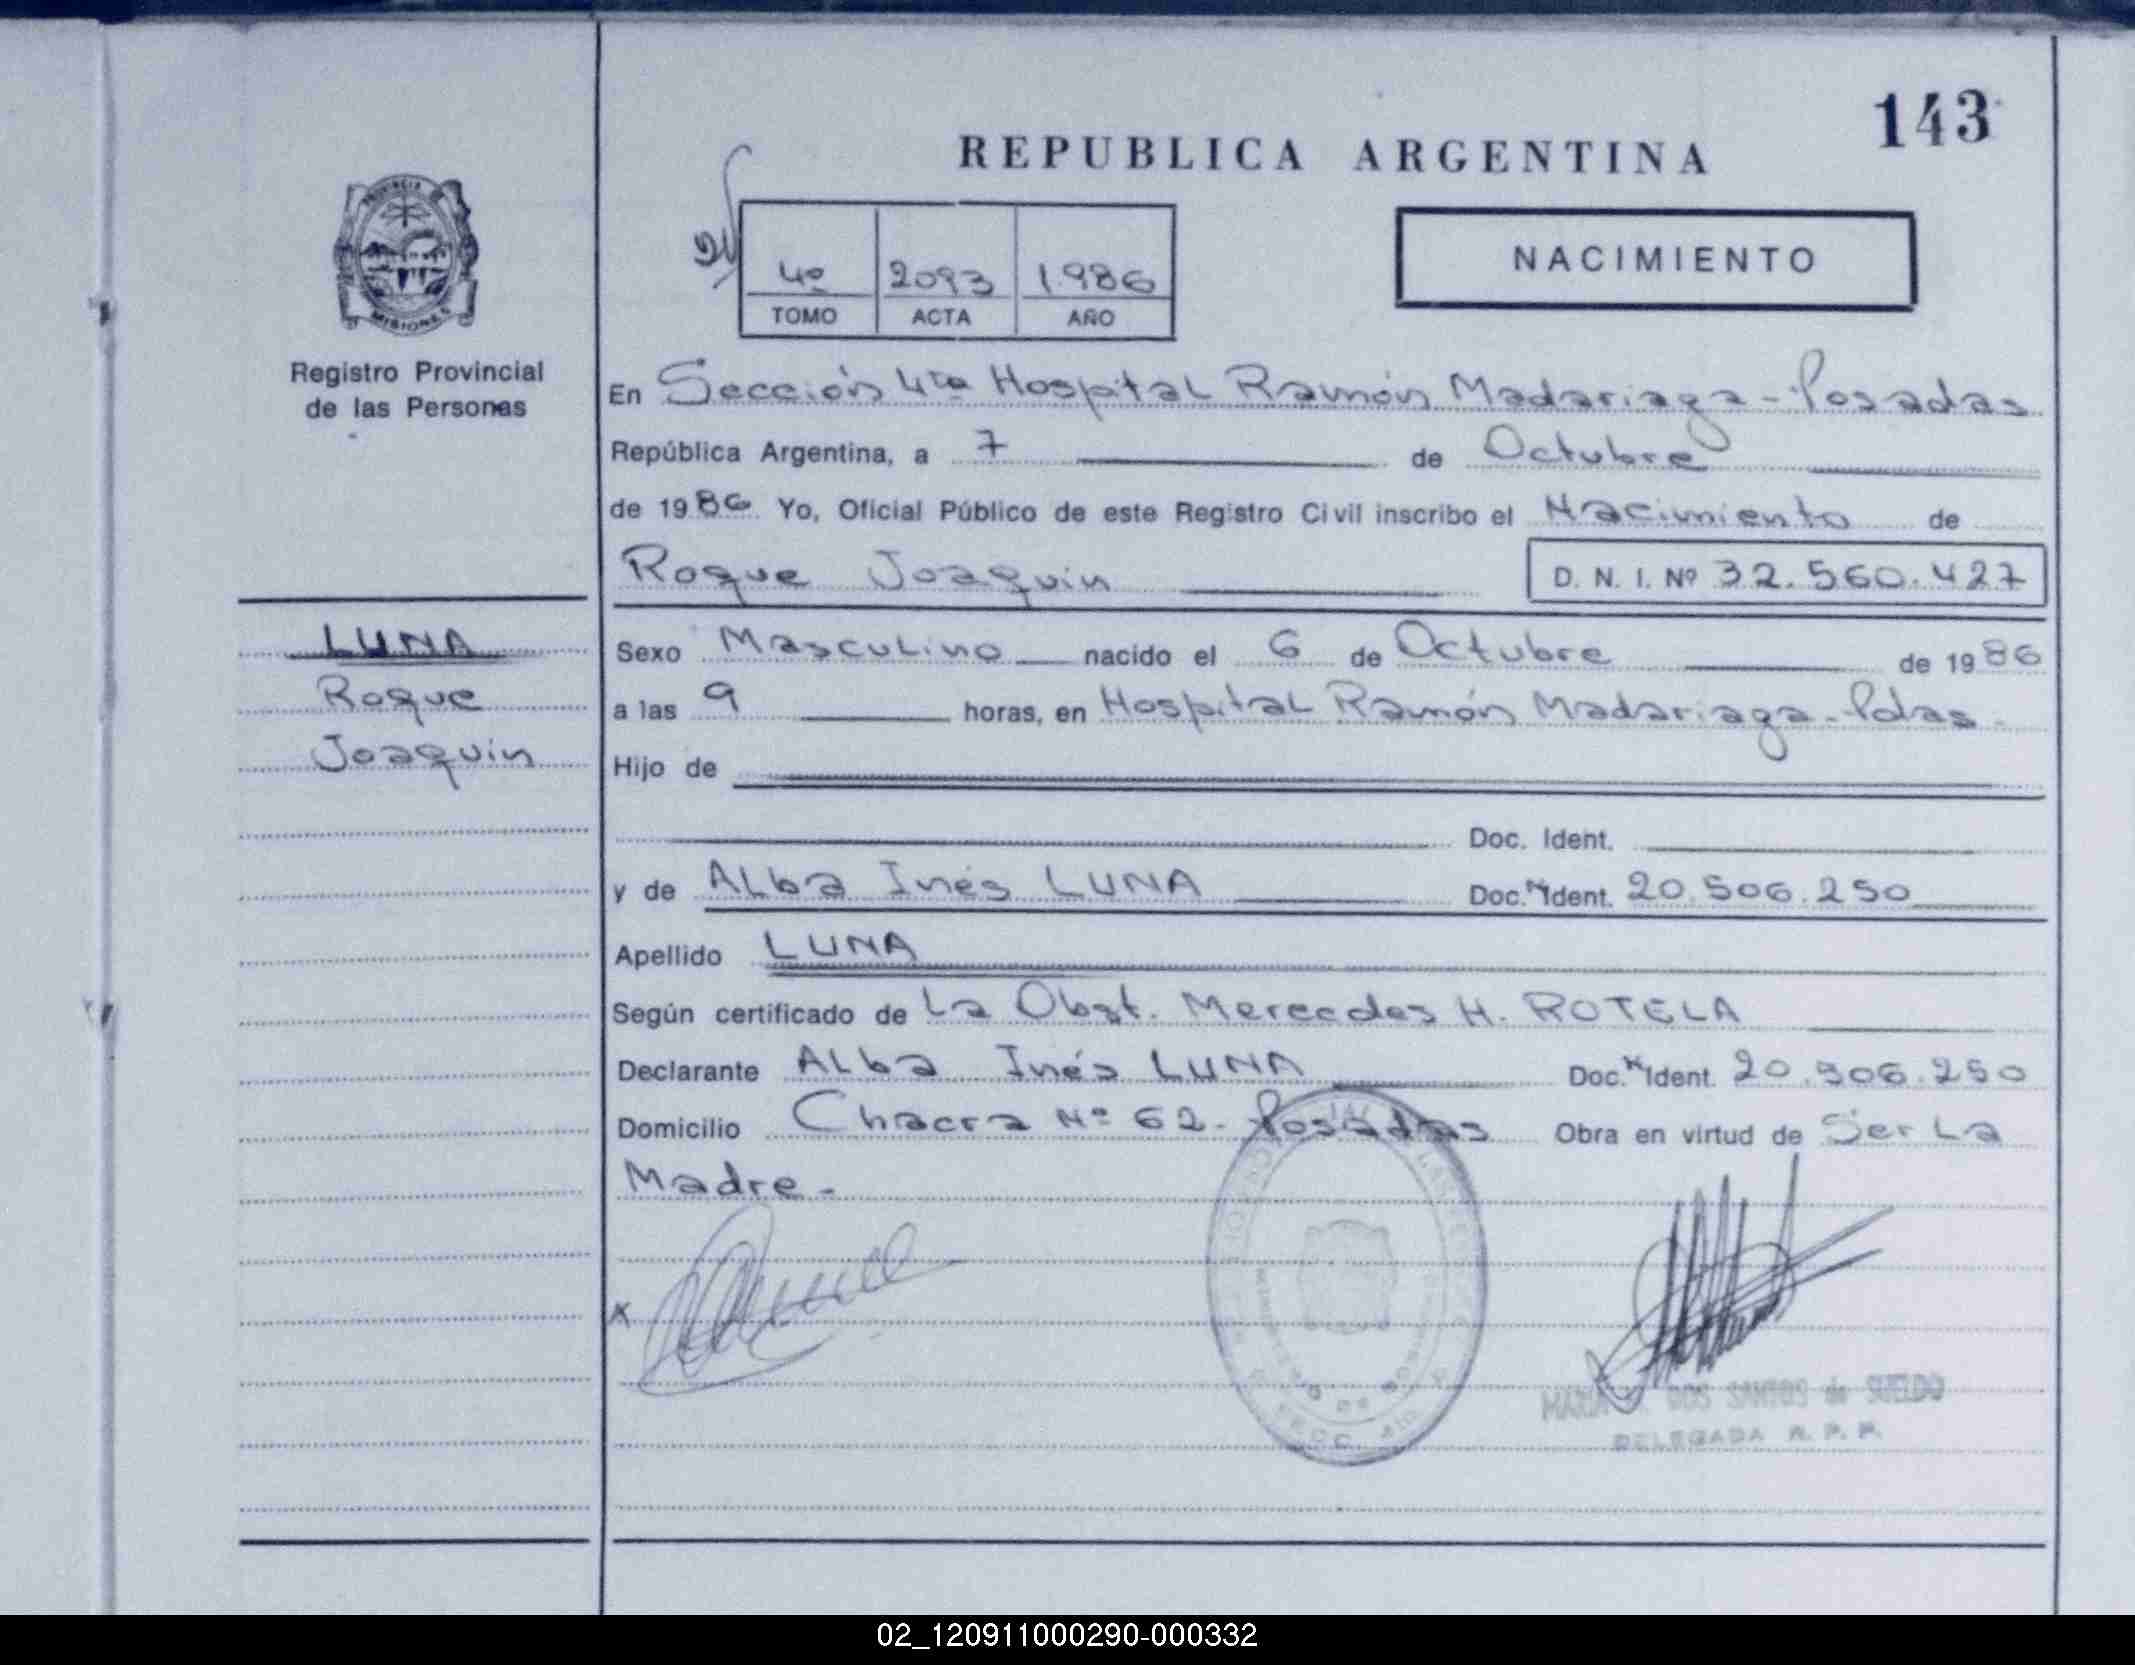 143
REPUBLICA ARGENTINA
NACIMIENTO
4º 2093 1986
TOMO ACTA AÑO
PROVINCIA
MISIONES
Registro Provincial
de las Personas
LUNA
Roque
Joaquín
En Sección 4ta Hospital Ramón Madariaga - Posadas
República Argentina, a 7 de Octubre
de 1986 Yo, Oficial Público de este Registro Civil inscribo el Nacimiento de
Roque Joaquín D. N. I. Nº 32.560.427
Sexo Masculino nacido el 6 de Octubre de 1986
a las 9 horas, en Hospital Ramón Madariaga - Pdas -
Hijo de
Doc. Ident.
y de Alba Inés LUNA Doc. Ident. 20.506.250
Apellido LUNA
Según certificado de La Obst. Mercedes H. ROTELA
Declarante Alba Inés LUNA Doc. Ident. 20.506.250
Domicilio Chacra Nº 62 - Posadas Obra en virtud de Ser La
Madre -
x
DOS SANTOS de
DELEGADA R. P. P.
02_120911000290-000332